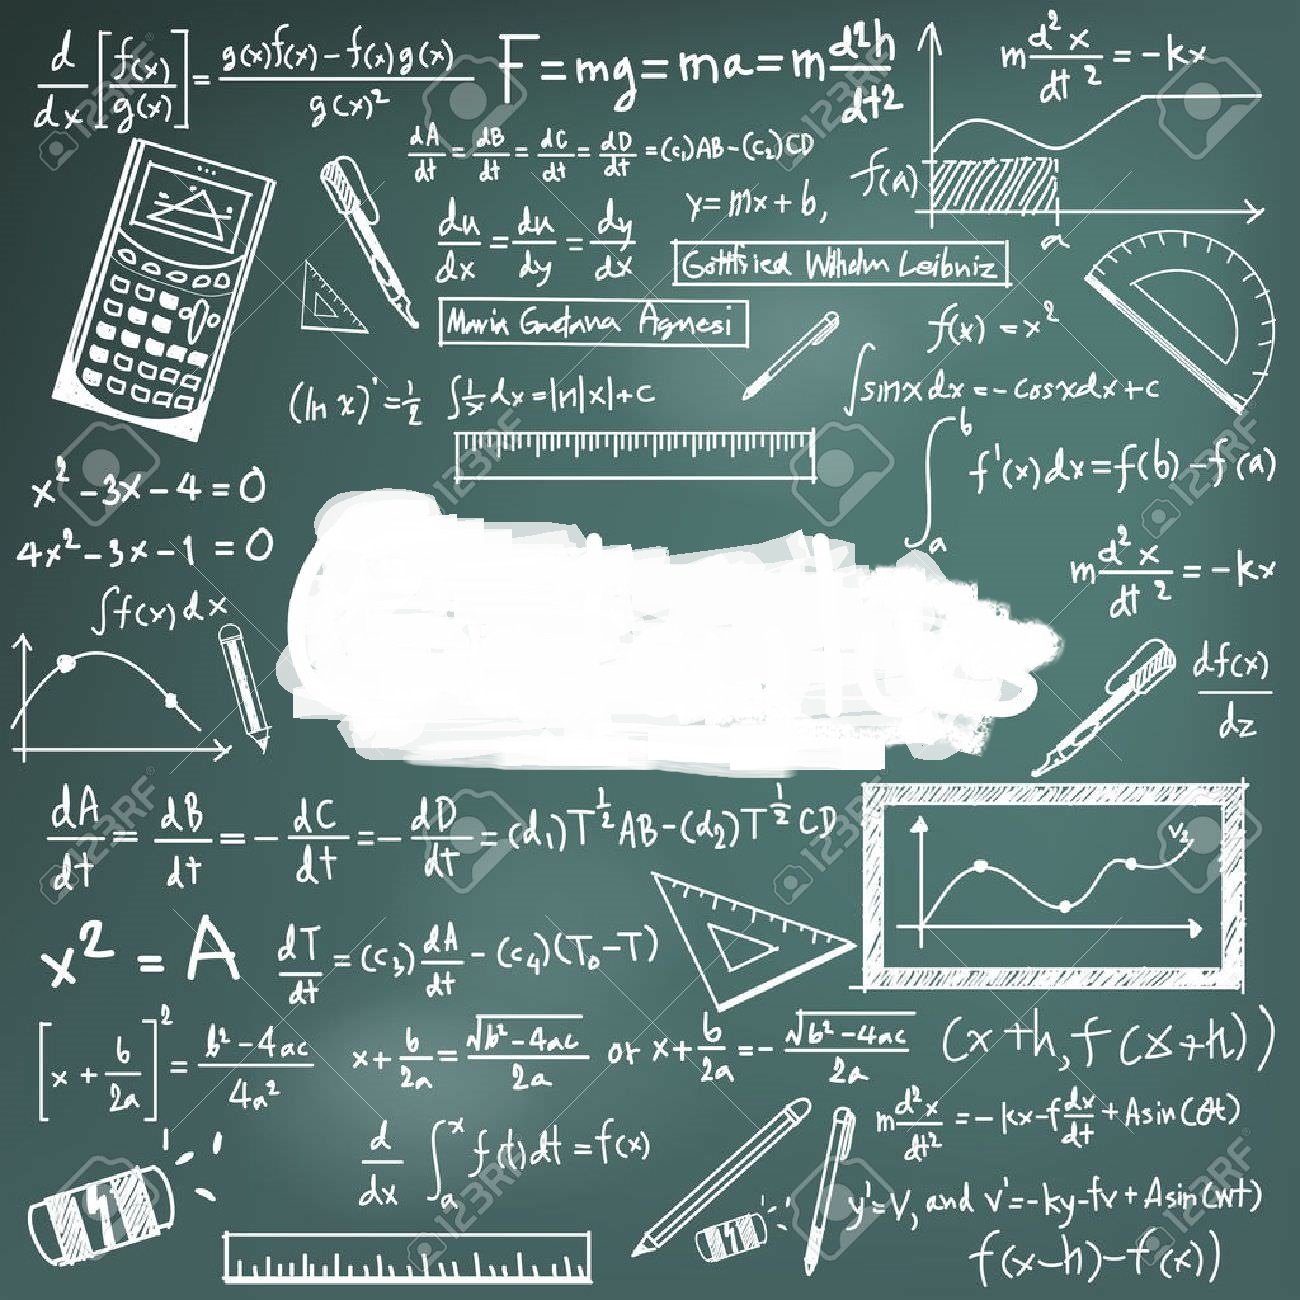 d/dx [f(x)/g(x)] = g(x)f(x) - f(x)g(x) / g(x)²
F = mg = ma = m d²h/dt2
m d²x/dt² = -kx
dA/dt = dB/dt = dC/dt = dD/dt = (c₁)AB-(c₂)CD
f(a)
y = mx + b,
a
du/dx = du/dy = dy/dx
Gottfried Wilhelm Leibniz
Maria Gaetana Agnesi
f(x) = x²
(ln x)' = 1/2
∫ 1/x dx = ln|x| + c
∫ sinx dx = - cosxdx + c
∫ₐᵇ f'(x)dx = f(b) - f(a)
x² - 3x - 4 = 0
4x² - 3x - 1 = 0
m d²x/dt² = -kx
∫f(x)dx
df(x)/dz
dA/dt = dB/dt = - dC/dt = - dD/dt = (d₁)T^½ AB-(d₂)T^½ CD
x² = A
dT/dt = (c₃) dA/dt - (c₄)(T₀-T)
[x + b/2a]² = b²-4ac / 4a²
x + b/2a = √b²-4ac / 2a or x + b/2a = - √b²-4ac / 2a
(x+h, f(x+h))
m d²x/dt² = - kx-f dx/dt + Asin(ωt)
d/dx ∫ₐˣ f(t)dt = f(x)
y'=v, and v'=-ky-fv+Asin(wt)
f(x-h)-f(x))